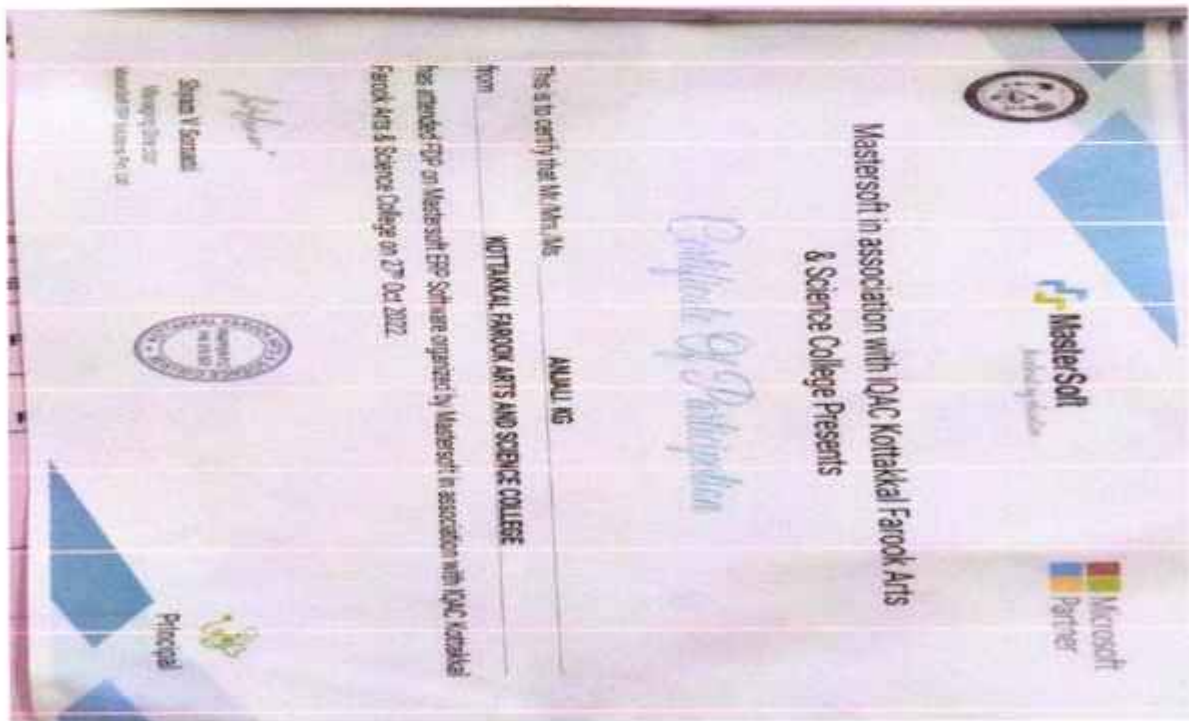 MasterSoft
Microsoft
Partner
Mastersoft in association with IQAC Kottakkal Farook Arts
& Science College Presents
Certificate Of Participation
This is to certify that Mr./Mrs./Ms. ANJALI KG
from KOTTAKKAL FAROOK ARTS AND SCIENCE COLLEGE
has attended FDP on Mastersoft ERP Software organized by Mastersoft in association with IQAC, Kottakkal
Farook Arts & Science College on 27th Oct 2022.
Managing Director
Principal